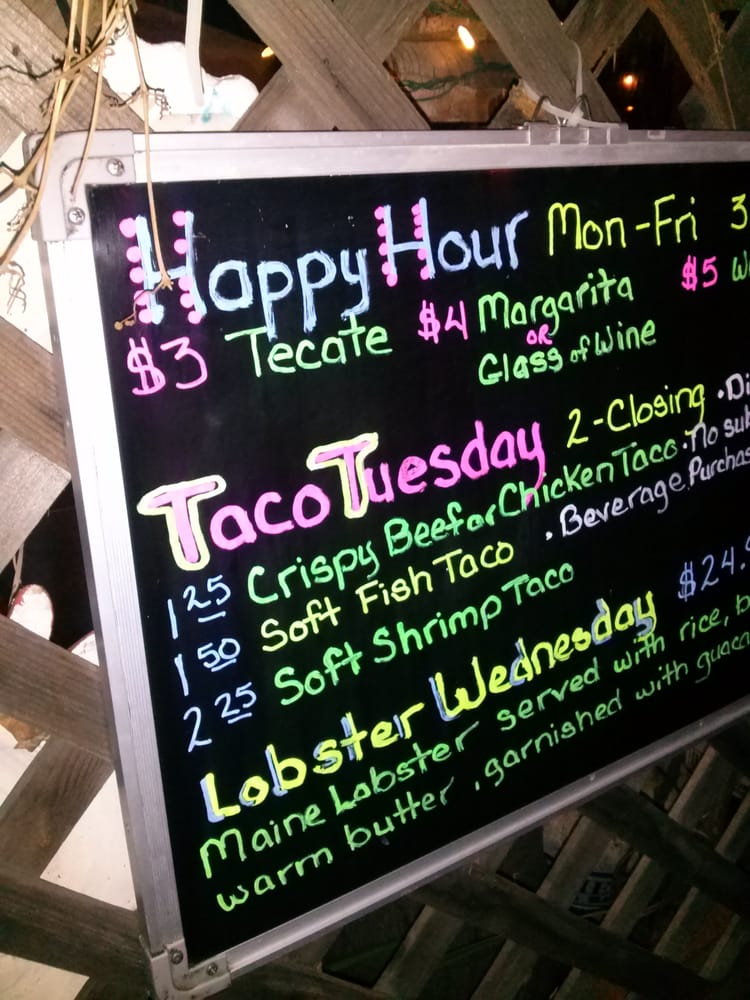 Happy Hour Mon-Fri 3
$3 Tecate $4 Margarita $5
OR
Glass of Wine
Taco Tuesday 2-Closing
1.25 Crispy Beef or Chicken Taco • No
1.50 Soft Fish Taco • Beverage Purchase
2.25 Soft Shrimp Taco
Lobster Wednesday $24.
Maine Lobster served with rice,
warm butter, garnished with